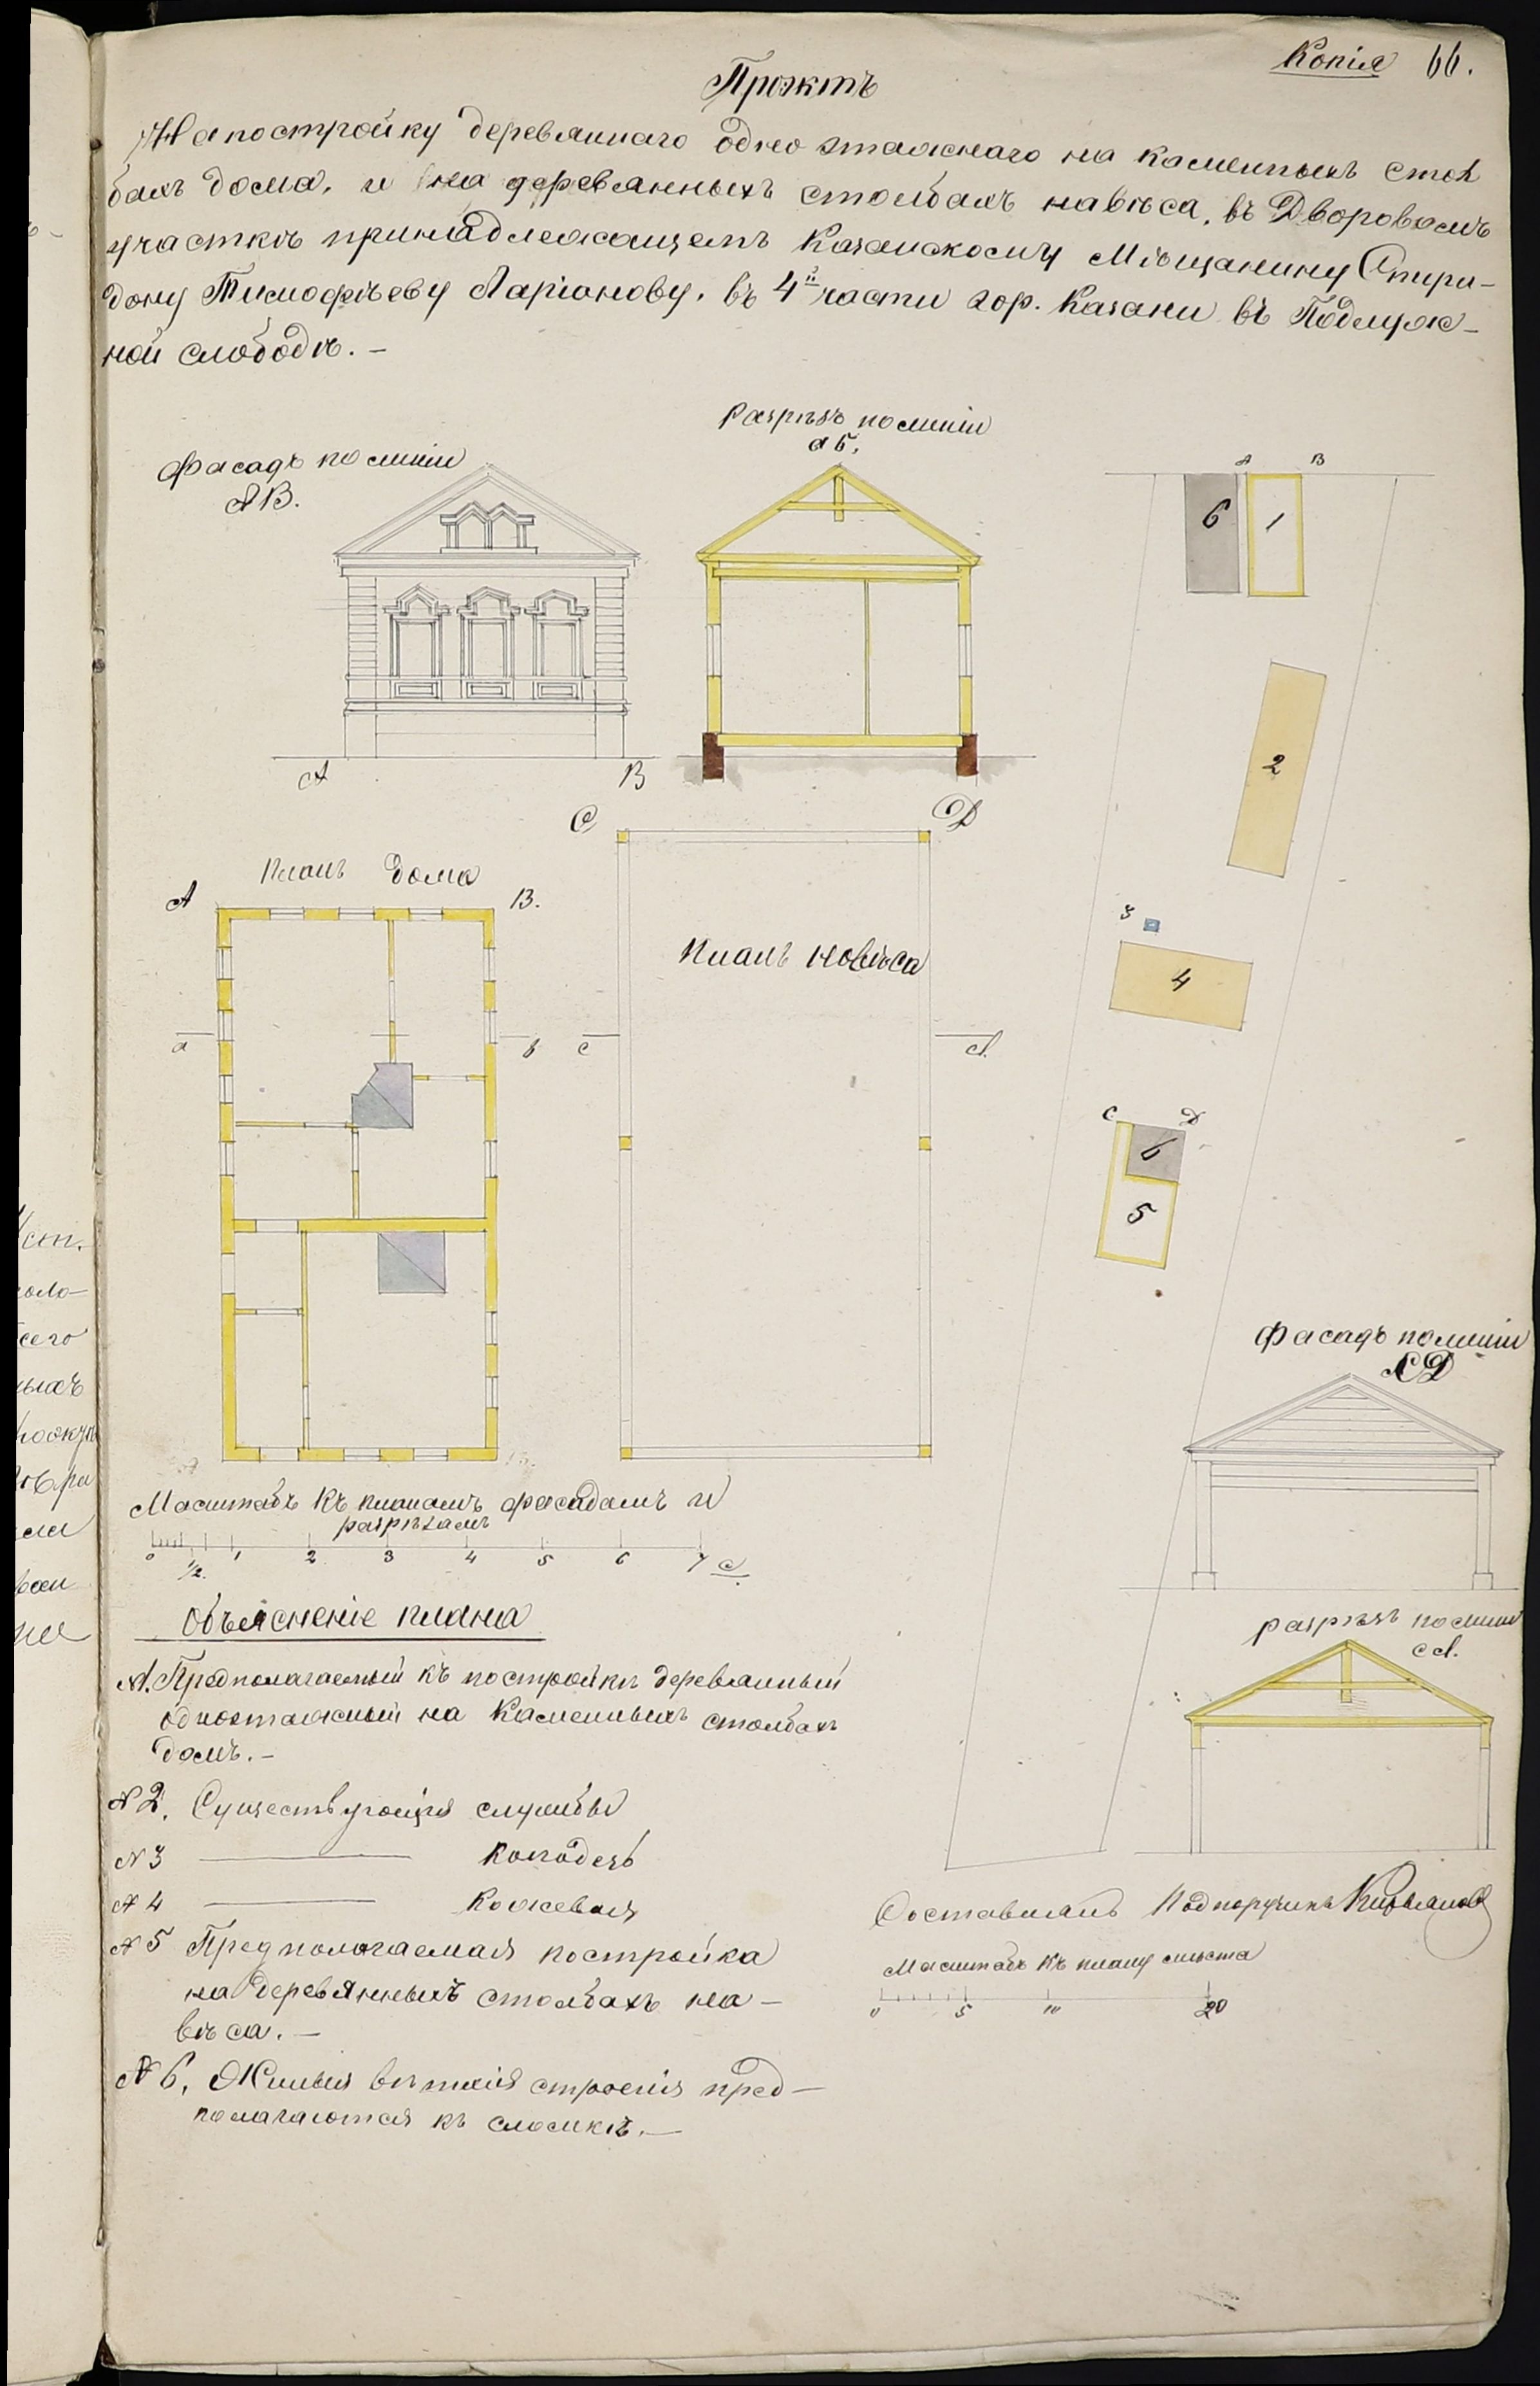 Копія 66.
Проэктъ
На постройку деревяннаго одно этажнаго на каменныхъ стол
бахъ дома, и на деревянныхъ столбахъ навѣса, въ Дворовомъ
участкѣ принадлежащемъ Казанскому Мѣщанину Спири-
дону Тимофѣеву Ларіонову. въ 4й части гор. Казани въ Подлуж-
ной слободѣ. –
Фасадъ по линіи
АВ.
А В
Разрѣзъ по линіи
аб.
А В
6 1
2
3
4
С D
6
5
Планъ дома
А В.
а в
С D
Планъ навѣса
с d.
Фасадъ по линіи
СD
Разрѣзъ по линіи
cd.
Масштабъ къ планамъ фасадамъ и
разрѣзамъ
0 1/2 1 2 3 4 5 6 7 с.
Объясненіе плана
№1. Предполагаемый къ постройкѣ деревянный
одноэтажный на каменныхъ столбахъ
домъ. –
№ 2. Существующія службы
№ 3 — Колодезь
№ 4 — Кожевая
№ 5 Предпологаемая постройка
на деревянныхъ столбахъ на –
вѣса. –
№ 6. Жилыя ветхія строенія пред –
полагаются къ сломкѣ. –
Составлялъ Подпоручикъ
Масштабъ къ плану мѣста
0 5 10 20